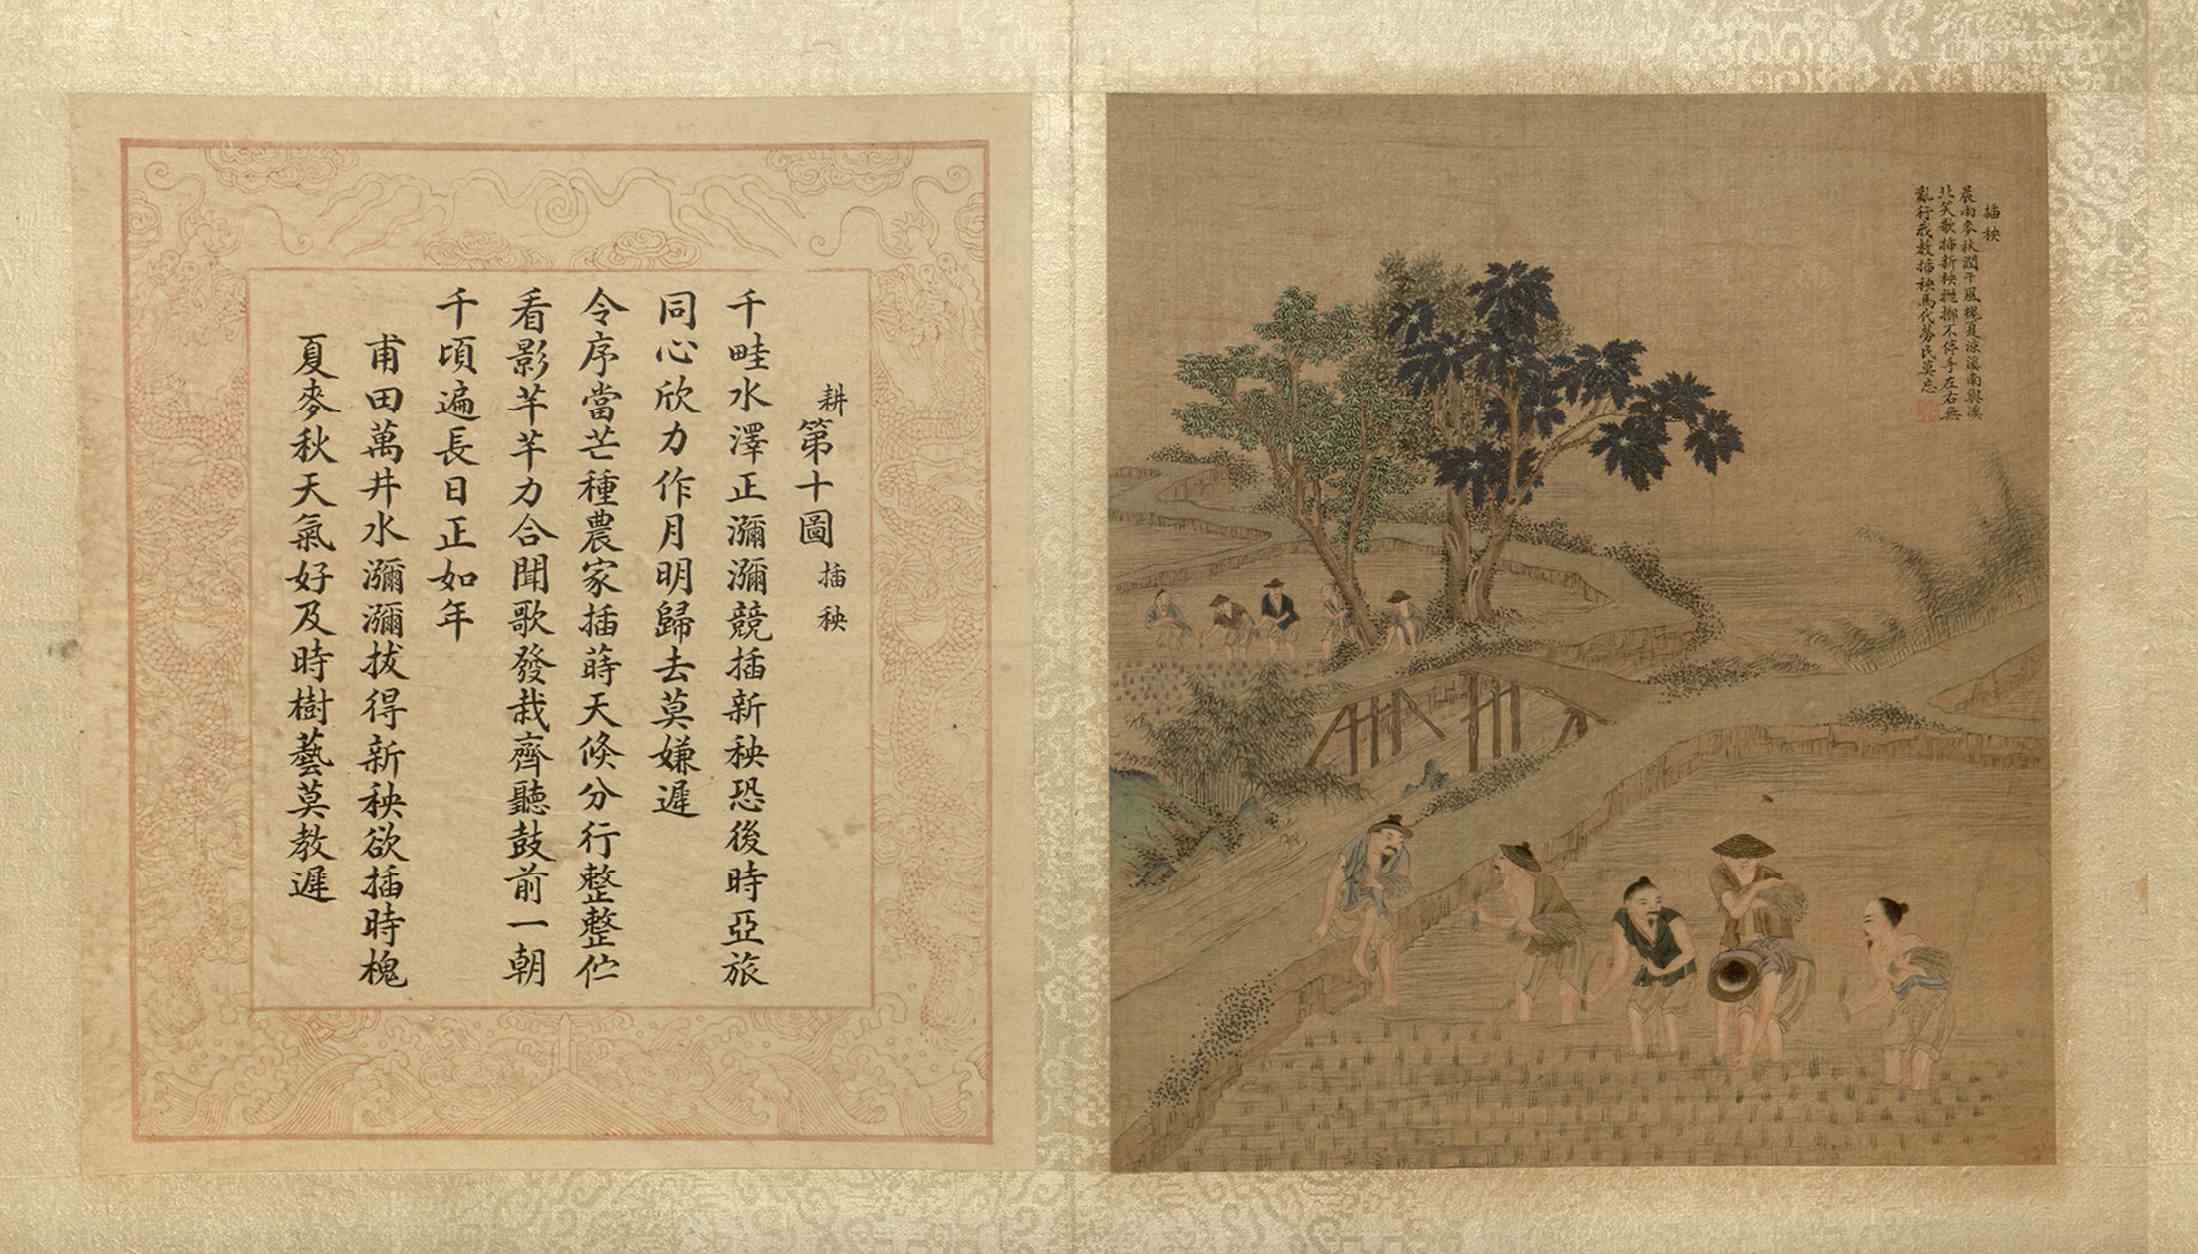 插秧
晨雨麥秋潤午風槐夏涼溪南與溪
北笑歌插新秧拋擲不停手左右無
亂行我教插秧馬代勞民莫忘
耕第十圖 插秧
千畦水澤正瀰瀰競插新秧恐後時亞旅
同心欣力作月明歸去莫嫌遲
令序當芒種農家插蒔天倏分行整整佇
看影芊芊力合聞歌發栽齊聽鼓前一朝
千頃遍長日正如年
甫田萬井水瀰瀰拔得新秧欲插時槐
夏麥秋天氣好及時樹藝莫教遲